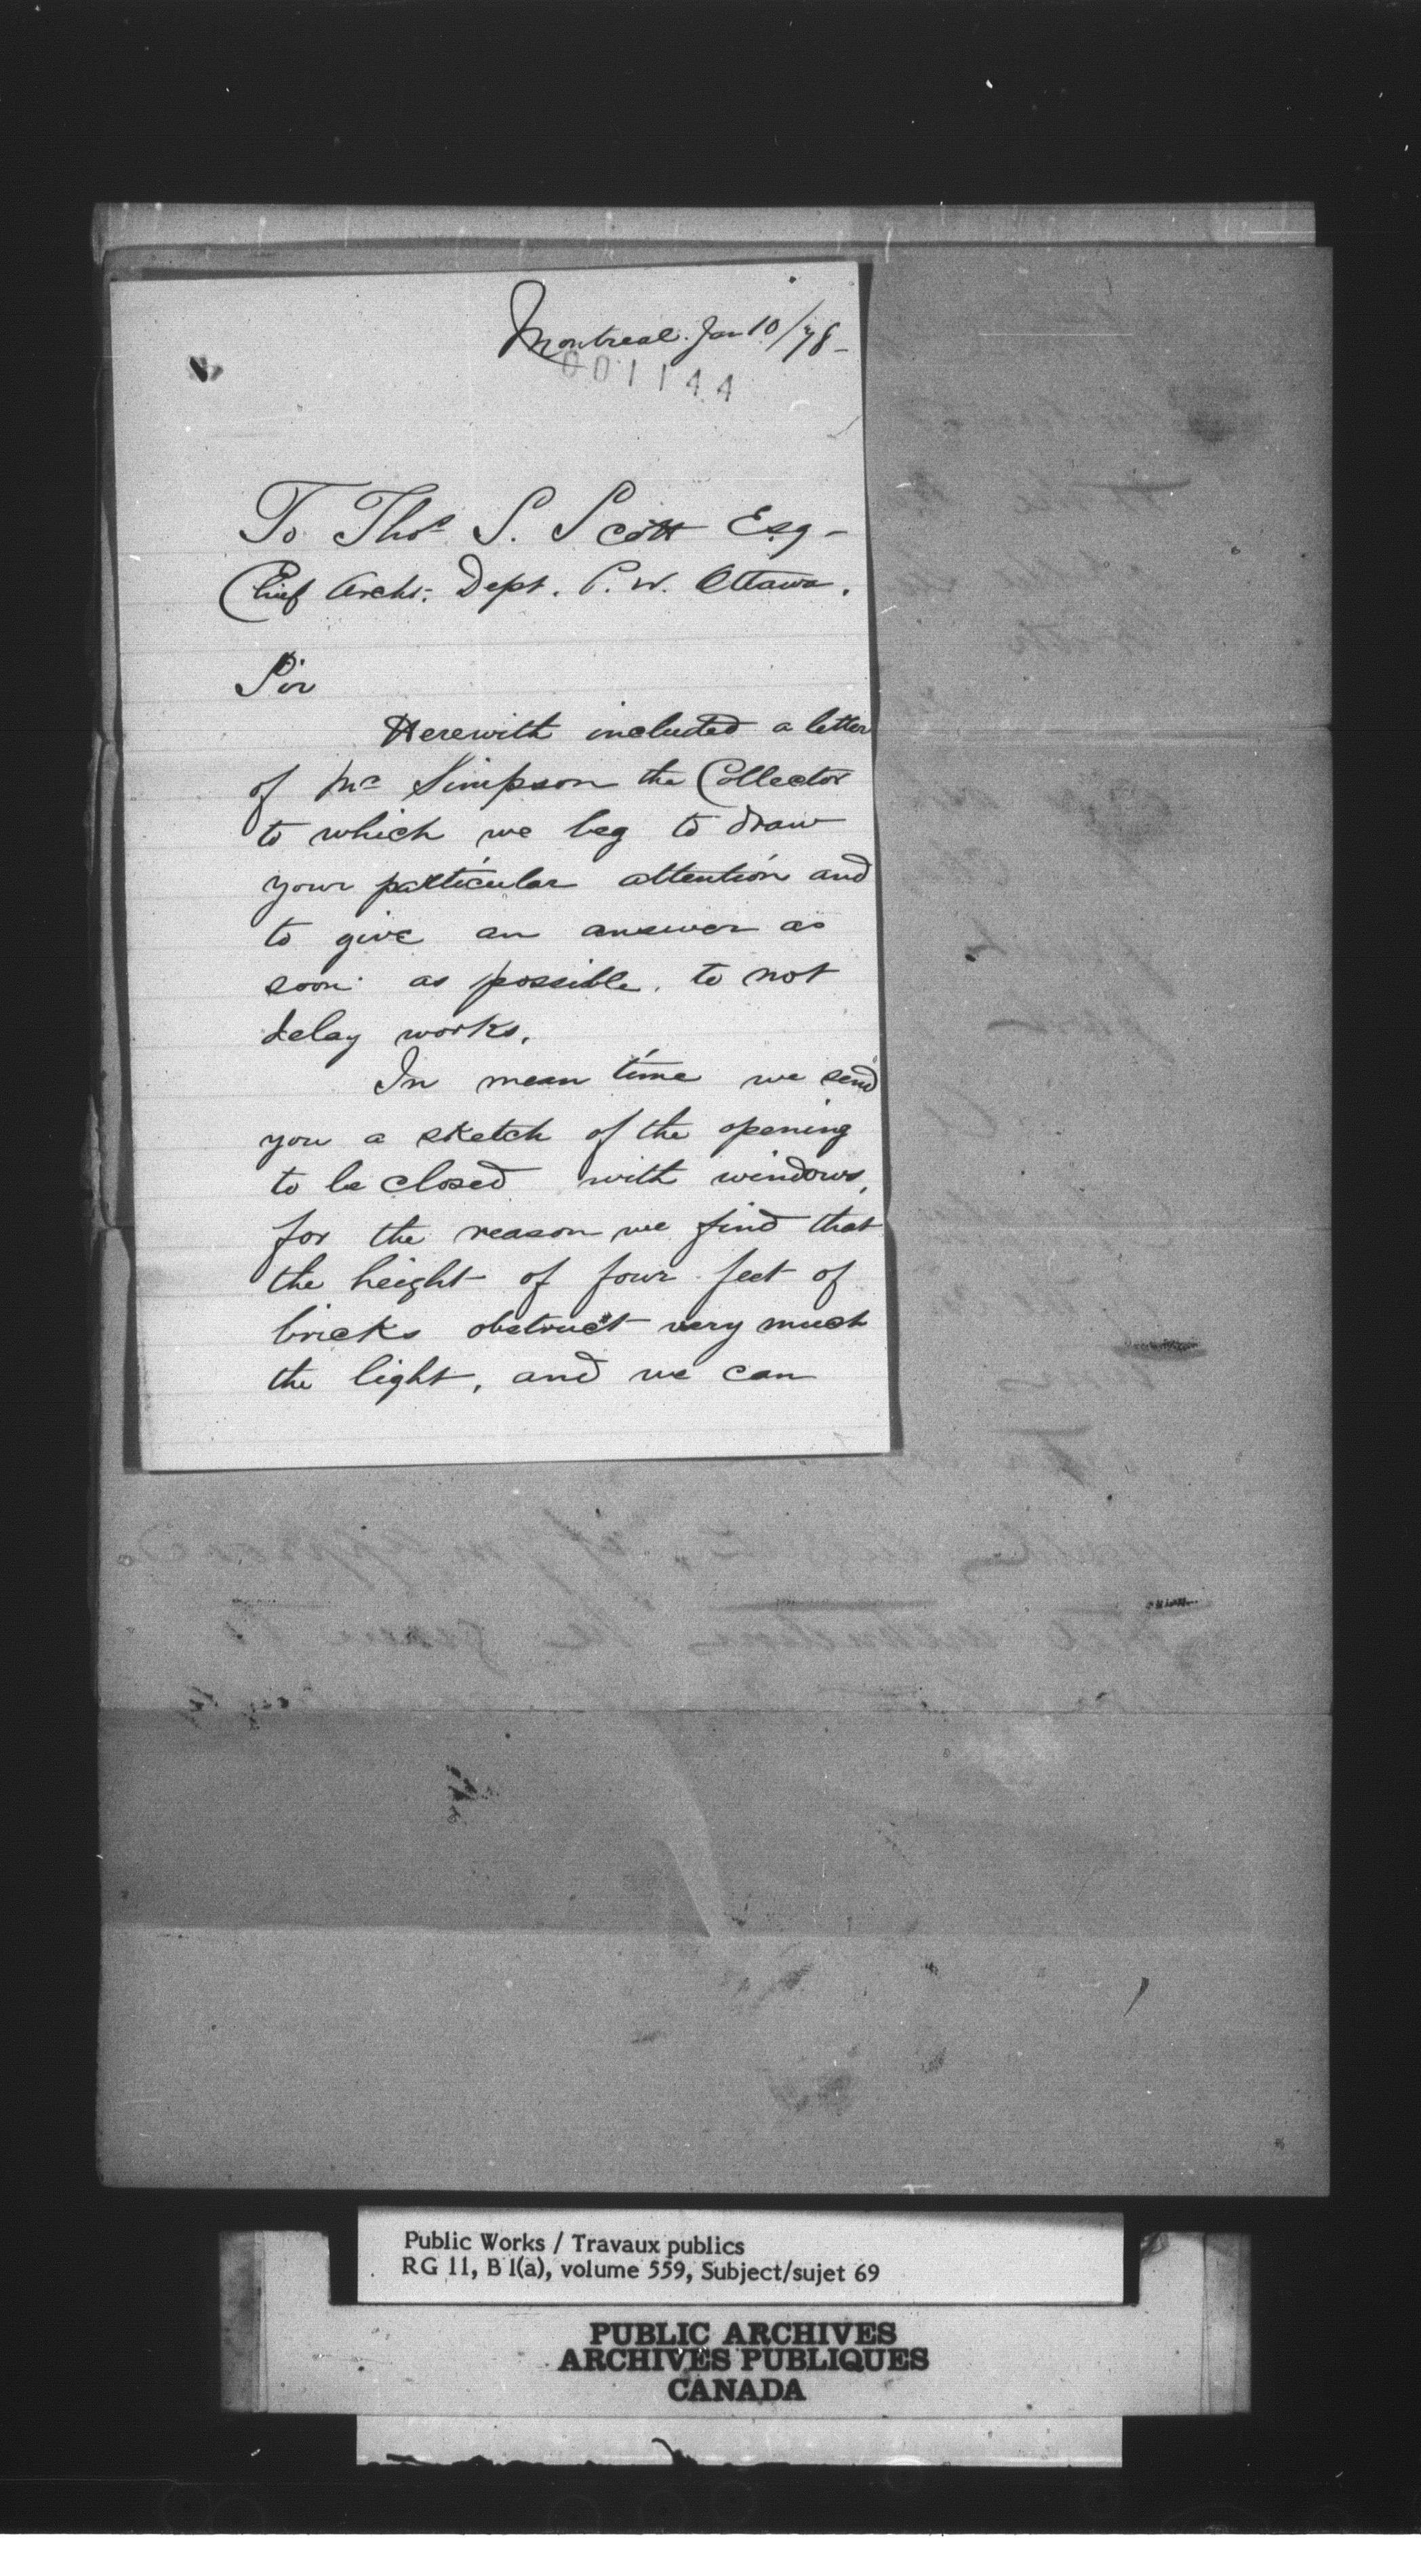 Montreal. Jan 10/78-
001144
To Thos S. Scott Esq-
Chief Archt. Dept. P. W. Ottawa.
Sir
Herewith included a letter
of Mr Simpson the Collector
to which we beg to draw
your particular attention and
to give an answer as
soon as possible. to not
delay works.
In mean time we send
you a sketch of the opening
to be closed with windows,
for the reason we find that
the height of four feet of
bricks obstruct very much
the light, and we can
Public Works / Travaux publics
RG 11, B 1(a), volume 559, Subject/sujet 69
PUBLIC ARCHIVES
ARCHIVES PUBLIQUES
CANADA